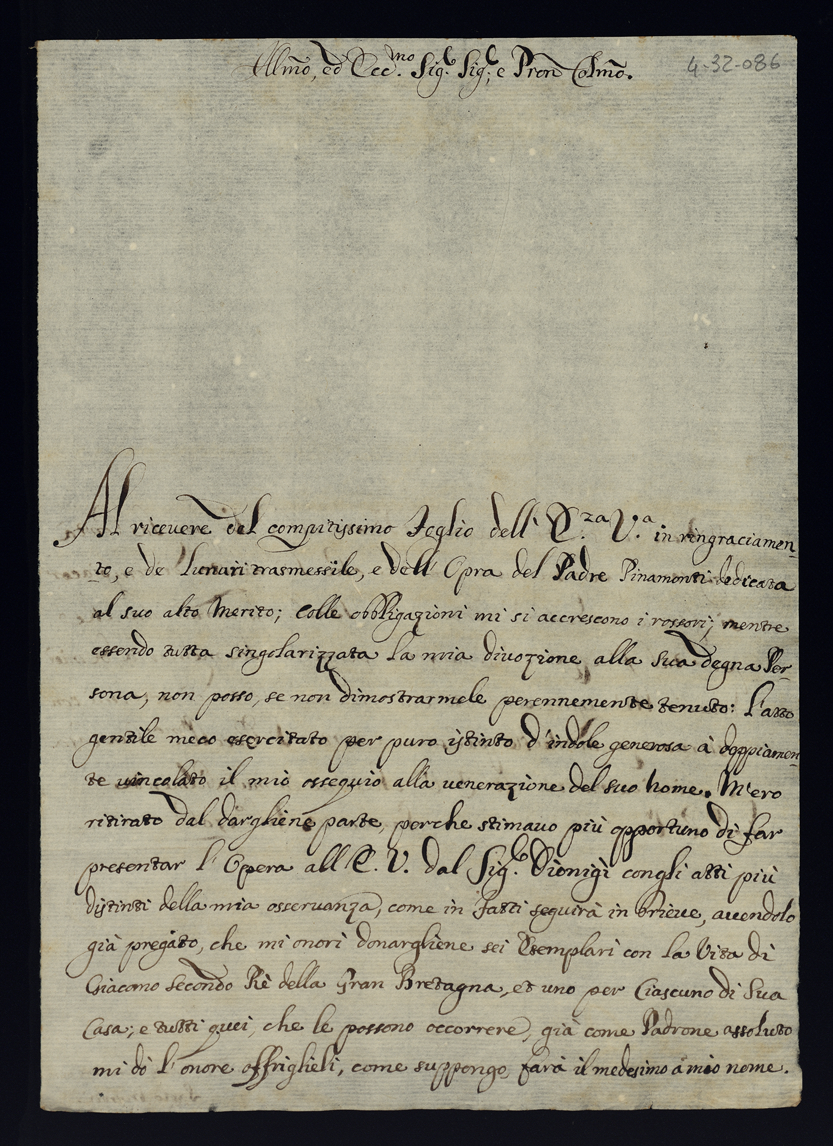 Illmo, ed Ecc.mo Sig.e Sig.e, e Pron Colmo.
4-32-086
Al ricevere del compitissimo Foglio dell' E.za V.a in ringraciamen-
to, e de Lunari trasmessile, e dell' Opra del Padre Pinamonti dedicata
al suo alto Merito; colle obbligazioni mi si accrescono i rossori; mentre
essendo tutta singolarizzata la mia divozione alla sua degna Per-
sona, non posso, se non dimostrarmele perennemente tenuto: l'atto
gentile meco esercitato per puro istinto d'indole generosa à doppiamen-
te vincolato il mio ossequio alla venerazione del suo Nome. M'ero
ritirato dal dargliene parte, perche stimavo più opportuno di far
presentar l'Opera all' E. V. dal Sig.e Dionigi congli atti più
distinti della mia osservanza, come in fatti seguirà in brieve, avendolo
già pregato, che mi onori donargliene sei Esemplari con la Vita di
Giacomo secondo Rè della Gran Bretagna, et uno per Ciascuno di Sua
Casa; e tutti quei, che le possono occorrere, già come Padrone assoluto
mi dò l'onore offriglieli, come suppongo farà il medesimo à mio nome.